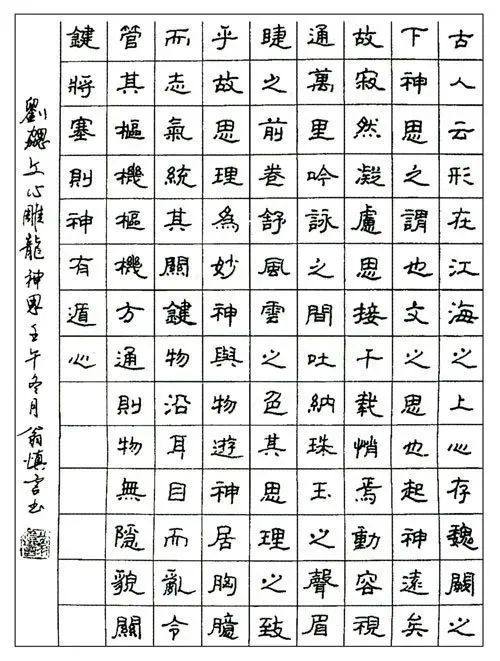 古人云形在江海之上心存魏闕之
下神思之謂也文之思也起神遠矣
故寂然凝慮思接千載悄焉動容視
通萬里吟詠之間吐納珠玉之聲眉
睫之前卷舒風雲之色其思理之致
乎故思理為妙神與物遊神居胸臆
而志氣統其關鍵物沿耳目而亂令
管其樞機樞機方通則物無隱貌關
鍵將塞則神有遁心
劉勰文心雕龍神思壬午冬月翁慎言書